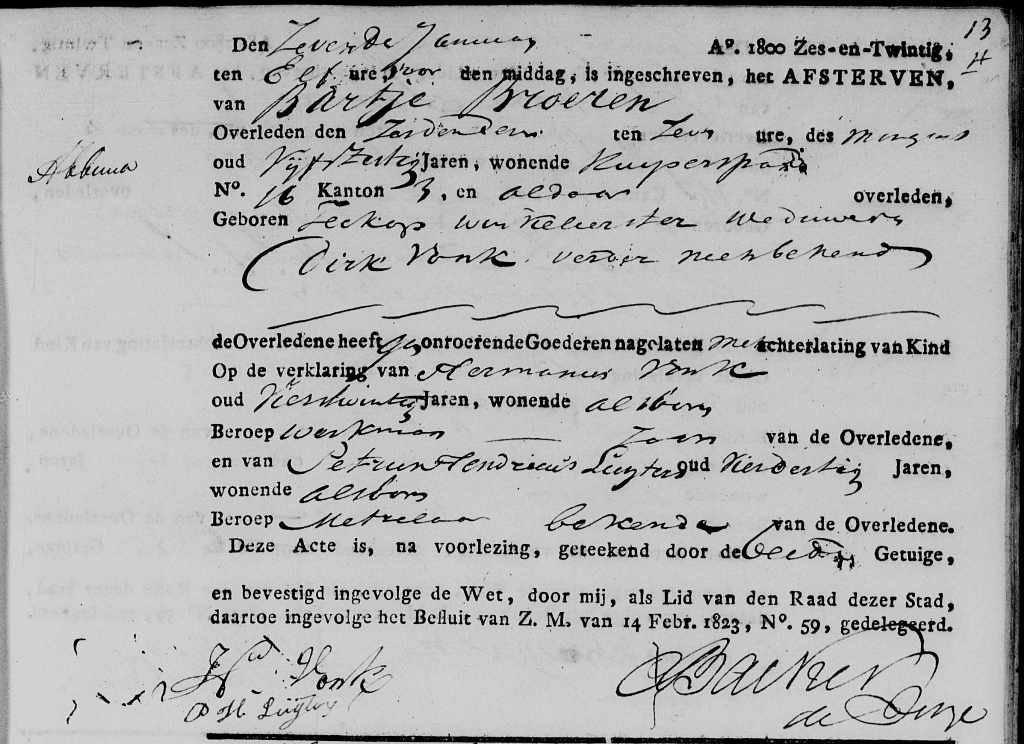 13
Den Zevende January Aº. 1800 Zes-en-Twintig,
ten Elf ure, voor den middag, is ingeschreven, het AFSTERVEN,
van Bartje Broeren
Overleden den Zesden dezer ten Zeven ure, des morgens
oud Vijf & Zestig Jaren, wonende Kuyperspad
Nº. 16 Kanton 33, en aldaar overleden,
Geboren Teckop winkelierster Weduwe van
Dirk Vonk verder niet bekend
de Overledene heeft geen onroerende Goederen nagelaten met achterlating van Kind
Op de verklaring van Hermanus Vonk
oud Vierentwintig Jaren, wonende alsboven
Beroep werkman — Zoon van de Overledene,
en van Petrus Hendricus Luyten oud Vierdertig Jaren,
wonende alsboven
Beroep Metselaar bekende van de Overledene.
Deze Acte is, na voorlezing, geteekend door de beide Getuige,
en bevestigd ingevolge de Wet, door mij, als Lid van den Raad dezer Stad,
daartoe ingevolge het Besluit van Z. M. van 14 Febr. 1823, Nº. 59, gedelegeerd.
Hs Vonk Backer
P H Luyten